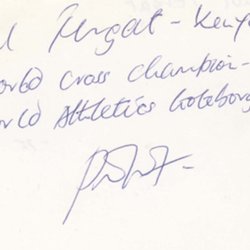 l Tergat - Keny
orld Cross Champion -
orld Athletics Goteborg